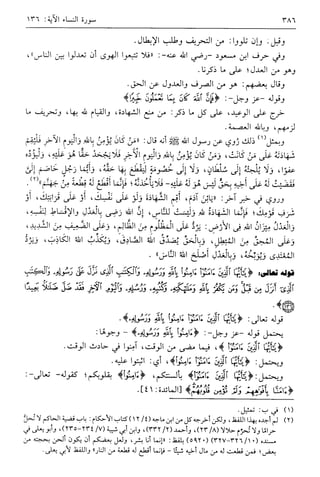 ٣٨٦ سورة النساء الآية: ١٣٦
وقيل: وإن تلووا: من التحريف وطلب الإبطال.
وفي حرف ابن مسعود -رضي الله عنه-: «فلا تتبعوا الهوى أن تعدلوا بين الناس»،
وهو من العدل؛ على ما ذكرنا.
وقال بعضهم: هو من الصرف والعدول عن الحق.
وقوله -عز وجل-: ﴿فَإِنَّ اللَّهَ كَانَ بِمَا تَعْمَلُونَ خَبِيرًا﴾
خرج على الوعيد، على كل ما ذكر: من منع الشهادة، والقيام لله بها، وتحريف ما
لزمهم، وبالله العصمة.
وبمثل(١) ذلك روي عن رسول الله ﷺ أنه قال: «مَنْ كَانَ يُؤْمِنُ بِاللهِ وَالْيَوْمِ الْآخِرِ فَلْيُقِمْ
شَهَادَتَهُ عَلَى مَنْ كَانَتْ، وَمَنْ كَانَ يُؤْمِنُ بِاللهِ وَالْيَوْمِ الْآخِرِ فَلَا يَجْحَدْ حَقًّا هُوَ عَلَيْهِ، وَلْيُؤَدِّهِ
عَفْوًا، وَلَا يُلْجِئْهُ إِلَى سُلْطَانٍ، وَلَا إِلَى خُصُومَةٍ لِيَقْطَعَ بِهَا حَقَّهُ، وَأَيُّمَا رَجُلٍ خَاصَمَ إِلَيَّ
فَقَضَيْتُ لَهُ عَلَى أَخِيهِ بِحَقٍّ لَيْسَ هُوَ لَهُ عَلَيْهِ - فَلَا يَأْخُذَنَّهُ؛ فَإِنَّمَا أَقْطَعُ لَهُ قِطْعَةً مِنْ جَهَنَّمَ»(٢)
وروي في خبر آخر: «يَابْنَ آدَمَ، أَقِمِ الشَّهَادَةَ وَلَوْ عَلَى نَفْسِكَ، أَوْ عَلَى قَرَابَتِكَ، أَوْ
شَرَفِ قَوْمِكَ؛ فَإِنَّمَا الشَّهَادَةُ للهِ وَلَيْسَتْ لِلنَّاسِ، إِنَّ اللهَ رَضِيَ بِالْعَدْلِ وَالْإِقْسَاطِ لِنَفْسِهِ،
وَالْعَدْلُ مِيزَانُ اللهِ فِي الْأَرْضِ: يَرُدُّ عَلَى الْمَظْلُومِ مِنَ الظَّالِمِ، وَعَلَى الضَّعِيفِ مِنَ الشَّدِيدِ،
وَعَلَى الْمُحِقِّ مِنَ الْمُبْطِلِ، وَبِالْحَقِّ يُصَدِّقُ اللهُ الصَّادِقَ، وَيُكَذِّبُ اللهُ الْكَاذِبَ، وَيَرُدُّ
الْمُعْتَدِي وَيُوَبِّخُهُ، وَبِالْعَدْلِ أَصْلَحَ اللهُ النَّاسَ».
قوله تعالى: ﴿يَا أَيُّهَا الَّذِينَ آمَنُوا آمِنُوا بِاللَّهِ وَرَسُولِهِ وَالْكِتَابِ الَّذِي نَزَّلَ عَلَى رَسُولِهِ وَالْكِتَابِ
الَّذِي أَنْزَلَ مِنْ قَبْلُ وَمَنْ يَكْفُرْ بِاللَّهِ وَمَلَائِكَتِهِ وَكُتُبِهِ وَرُسُلِهِ وَالْيَوْمِ الْآخِرِ فَقَدْ ضَلَّ ضَلَالًا بَعِيدًا
﴾.
قوله تعالى: ﴿يَا أَيُّهَا الَّذِينَ آمَنُوا آمِنُوا بِاللَّهِ وَرَسُولِهِ﴾.
يحتمل قوله -عز وجل-: ﴿يَا أَيُّهَا الَّذِينَ آمَنُوا آمِنُوا بِاللَّهِ وَرَسُولِهِ﴾ - وجوهًا:
﴿يَا أَيُّهَا الَّذِينَ آمَنُوا﴾، فيما مضى من الوقت، آمنوا في حادث الوقت.
ويحتمل: ﴿يَا أَيُّهَا الَّذِينَ آمَنُوا آمِنُوا بِاللَّهِ وَرَسُولِهِ﴾، أي: اثبتوا عليه.
ويحتمل: ﴿يَا أَيُّهَا الَّذِينَ آمَنُوا﴾ بألسنتكم، ﴿آمِنُوا﴾ بقلوبكم؛ كقوله -تعالى-:
﴿آمَنَّا بِأَفْوَاهِهِمْ وَلَمْ تُؤْمِنْ قُلُوبُهُمْ﴾ [المائدة: ٤١].
(١) في ب: تمثيل.
(٢) لم أجده بهذا اللفظ، ولكن أخرجه كل من ابن ماجه (١٢/٤) كتاب الأحكام: باب قضية الحاكم لا تُحلُّ
حرامًا ولا تُحرِّم حلالًا (٢٣/٨)، وأحمد (٣٣٢/٢)، وابن أبي شيبة (٢٣٤/٧-٢٣٥)، وأبو يعلى في
مسنده (٣٢٦/١٠-٣٢٧) (٥٩٢٠) بلفظ: «إنما أنا بشر، ولعل بعضكم أن يكون ألحن بحجته من
بعض؛ فمن قطعت له من مال أخيه شيئًا - فإنما أقطع له قطعة من النار» واللفظ لأبي يعلى.